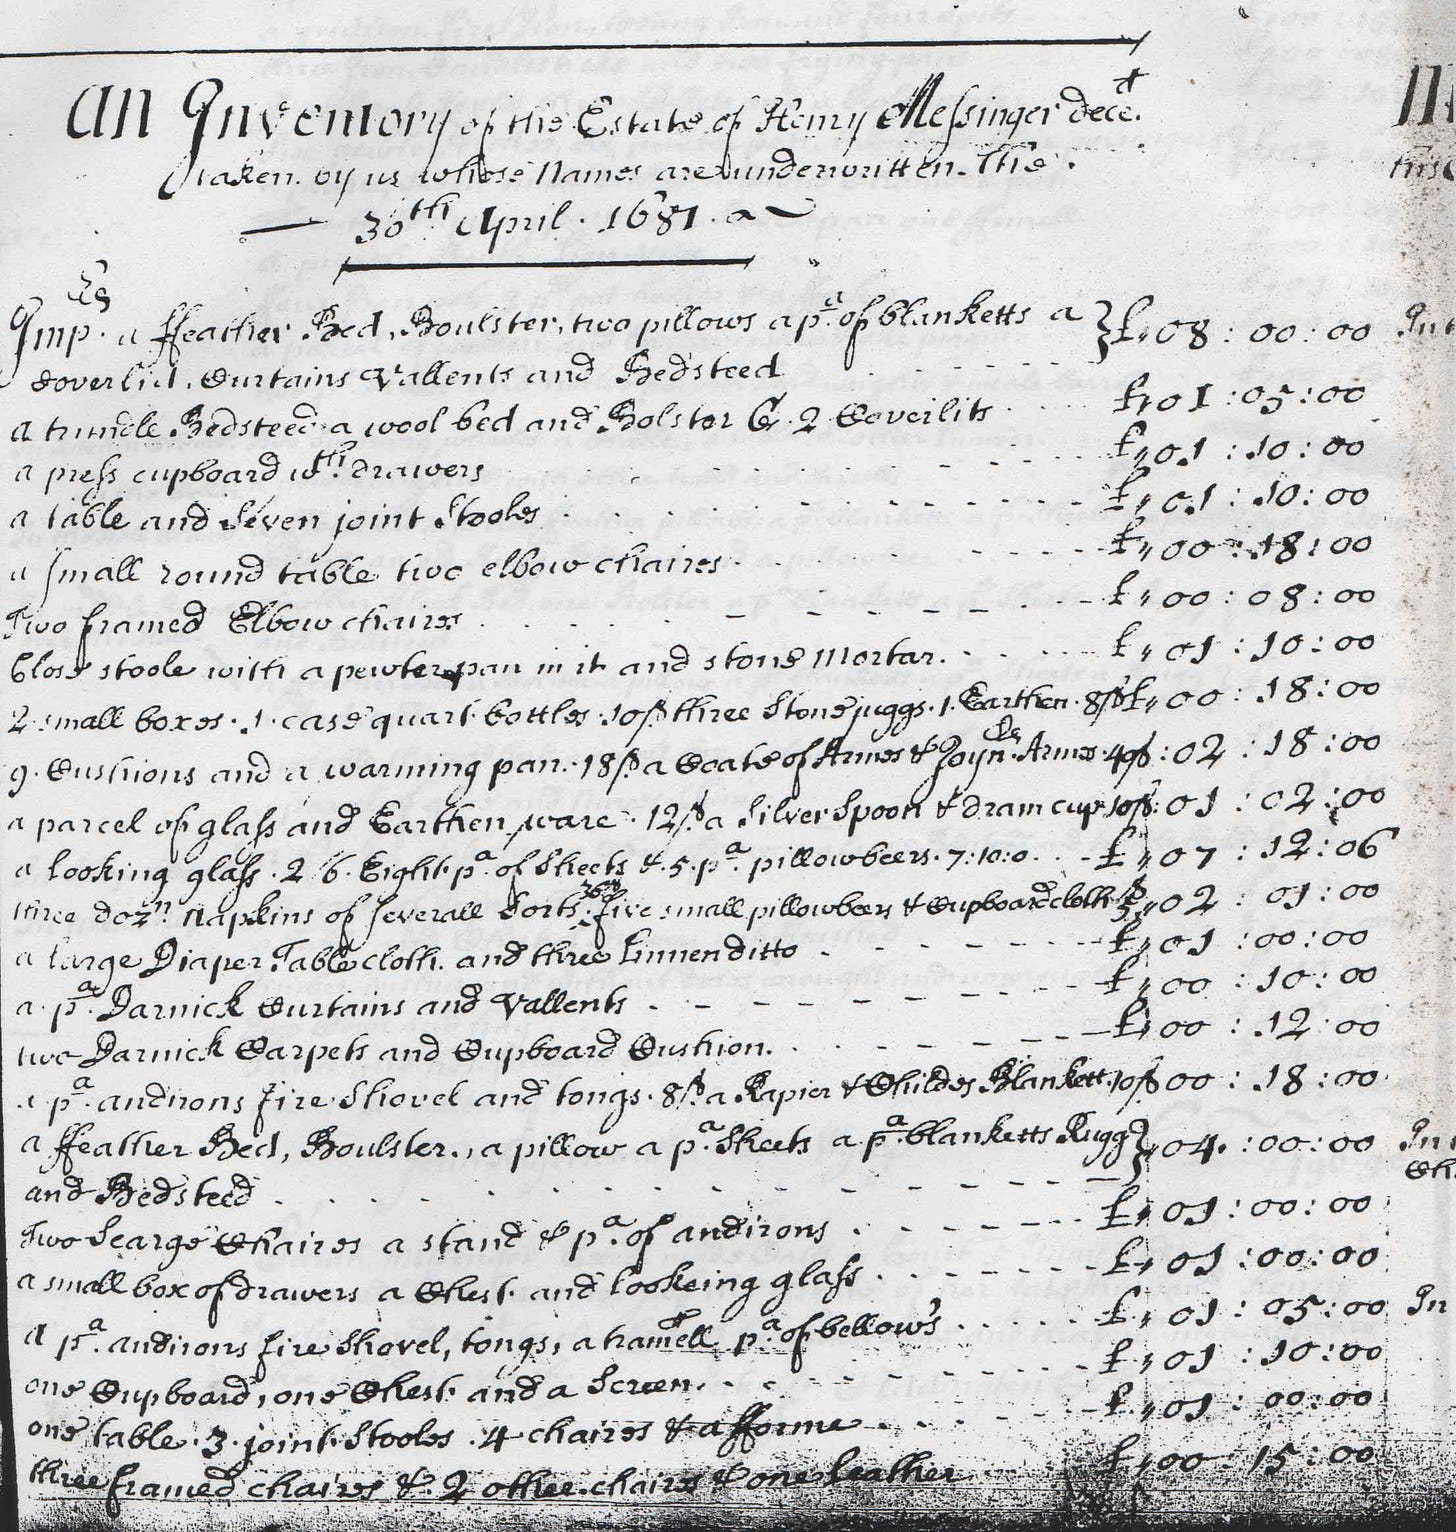 An Inventory of the Estate of Henry Messinger dece.d
taken by us whose Names are underwritten. The
30th April. 1681.
Imp.rs a ffeather Bed, Boulster, two pillows a p.a of blanketts a } £ 08 : 00 : 00
Coverlid, Curtains Vallents and Bedsteed
a trundle Bedsteed a wool bed and Bolster & 2 Coverlits £ 01 : 05 : 00
a press cupboard wth drawers £ 01 : 10 : 00
a table and Seven joint Stooles £ 01 : 10 : 00
a small round table two elbow chaires £ 00 : 18 : 00
Two framed Elbow chaires £ 00 : 08 : 00
Close stoole with a pewter pan in it and stone Mortar. £ 01 : 10 : 00
2 small boxes . 1 . case quart bottles . 10s three Stone juggs . 1 . Earthen . 8s £ 00 : 18 : 00
9 . Cushions and a warming pan . 18s a Coate of Armes & Joyn.rs Armes . 40s : 02 : 18 : 00
a parcel of glass and Earthen ware . 12s a Silver Spoon & dram cup 10s : 01 : 02 : 00
a looking glass . 2 6 . Eight p.a of Sheets & . 5 . p.a pillowbeers . 7 : 10 : 0 £ 07 : 12 : 06
three doz.n Napkins of severall Sorts five small pillowbeers & Cupboard cloth 02 : 01 : 00
a large Diaper Table cloth. and three Linnen ditto £ 01 : 00 : 00
a p.a Darnick Curtains and Vallents £ 00 : 10 : 00
two Darnick Carpets and Cupboard Cushion. £ 00 : 12 : 00
a p.a andirons fire Shovel and tongs . 8s a Rapier & Childes Blankett 10s 00 : 18 : 00
a ffeather Bed, Boulster, a pillow a p.a Sheets a p.a blanketts Rugg } 04 : 00 : 00
and Bedsteed
Two Learge Chaires a stand & p.a of andirons £ 01 : 00 : 00
a small box of drawers a Chest and lookeing glass £ 01 : 00 : 00
a p.a andirons fire Shovel, tongs, a tramell p.a of bellows £ 01 : 05 : 00
one Cupboard, one Chest and a Screen £ 01 : 10 : 00
one table . 3 . joint Stooles . 4 chaires & a fforme £ 01 : 00 : 00
three framed chaires & 2 other chaires & one leather £ 00 : 15 : 00